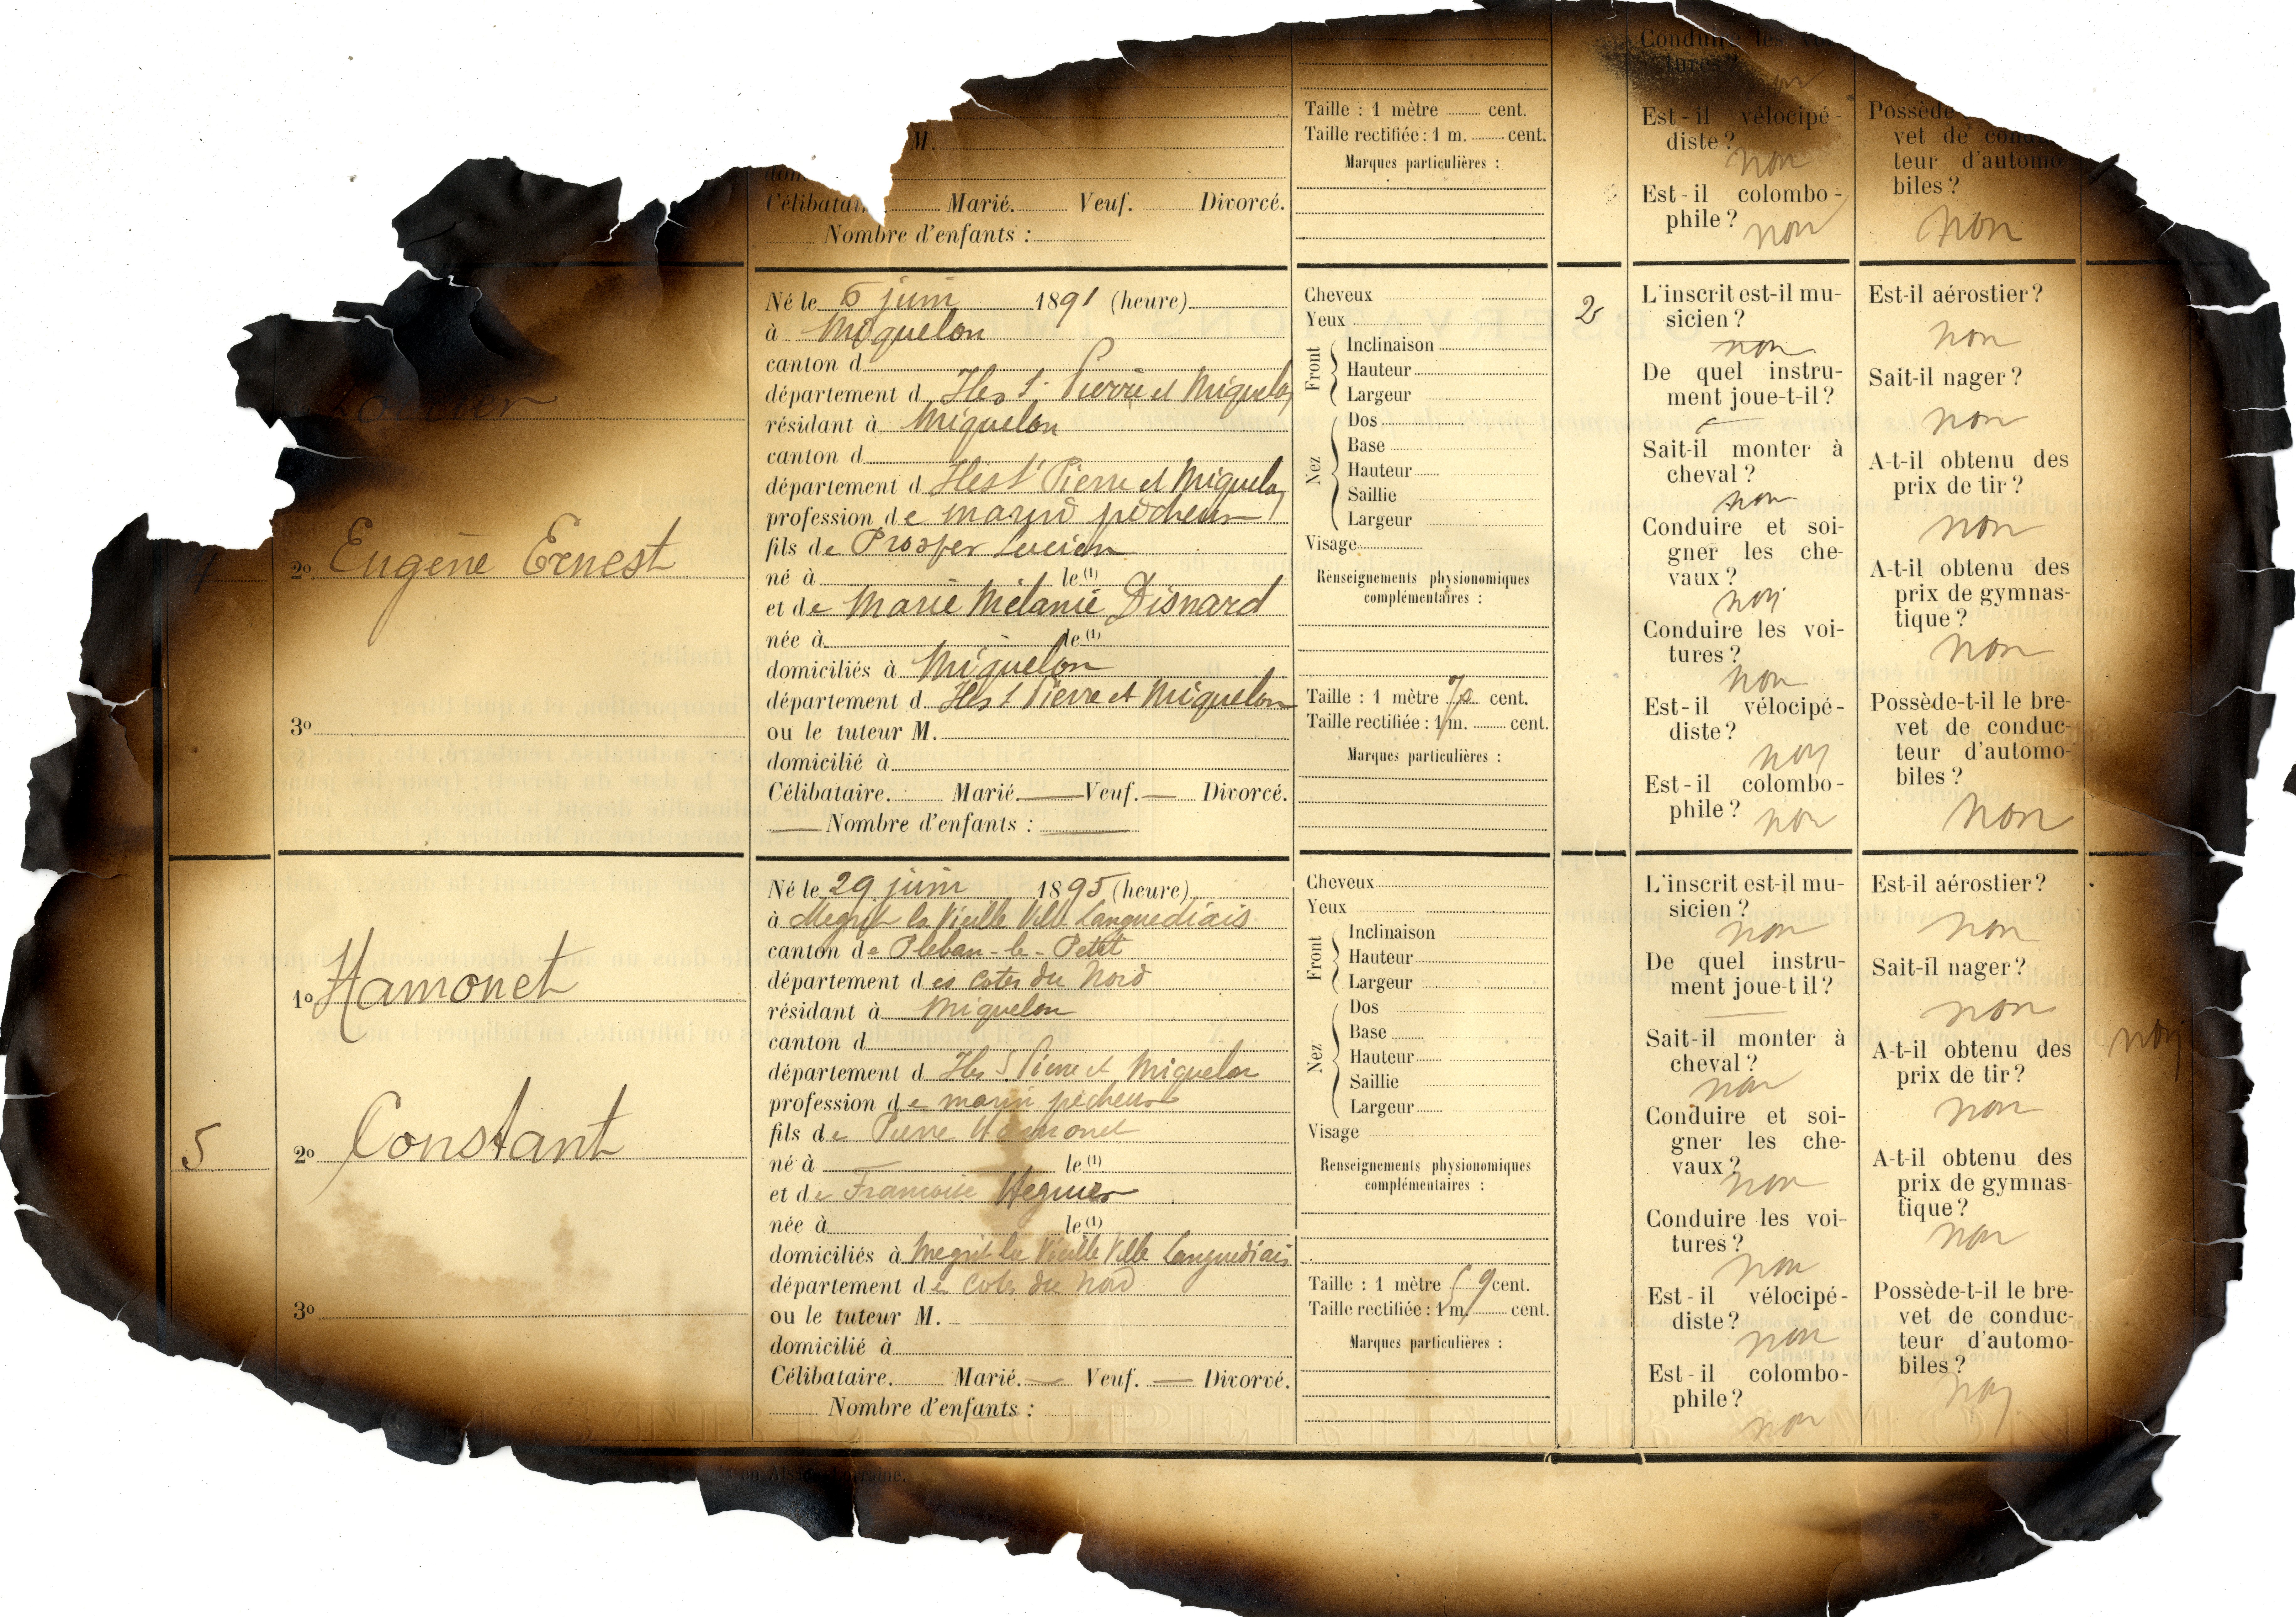 Taille : 1 mètre ........ cent.
Taille rectifiée : 1 m. ........ cent.
Marques particulières :
M.
Célibatai
Marié. Veuf. Divorcé.
Nombre d'enfants :
Conduire les
tures ?
non
Est-il vélocipé-
diste ?
non
Est-il colombo-
phile ?
non
Possède
vet de
teur d'automo
biles ?
non
2° Eugène Ernest
3°
Né le 6 juin 1891 (heure)
à Miquelon
canton d
département d Iles St Pierre et Miquelon
résidant à Miquelon
canton d
département d Iles St Pierre et Miquelon
profession de marin pêcheur
fils de Prosper Lucien
né à le (1)
et de Marie Mélanie Disnard
née à le (1)
domiciliés à Miquelon
département d Iles St Pierre et Miquelon
ou le tuteur M.
domicilié à
Célibataire. Marié. — Veuf. — Divorcé.
— Nombre d'enfants : —
Cheveux
Yeux
Front
Inclinaison
Hauteur
Largeur
Nez
Dos
Base
Hauteur
Saillie
Largeur
Visage
Renseignements physionomiques
complémentaires :
Taille : 1 mètre 70 cent.
Taille rectifiée : 1 m. ........ cent.
Marques particulières :
2
L'inscrit est-il mu-
sicien ?
non
De quel instru-
ment joue-t-il ?
Sait-il monter à
cheval ?
non
Conduire et soi-
gner les che-
vaux ?
non
Conduire les voi-
tures ?
non
Est-il vélocipé-
diste ?
non
Est-il colombo-
phile ?
non
Est-il aérostier ?
non
Sait-il nager ?
non
A-t-il obtenu des
prix de tir ?
non
A-t-il obtenu des
prix de gymnas-
tique ?
non
Possède-t-il le bre-
vet de conduc-
teur d'automo-
biles ?
non
5
1° Hamonet
2° Constant
3°
Né le 29 juin 1895 (heure)
à Megrit la Vieille Ville Languediais
canton de Pleban-le-Petit
département des Cotes du Nord
résidant à Miquelon
canton d
département d Iles S Pierre et Miquelon
profession de marin pêcheur
fils de Pierre Hamonet
né à le (1)
et de Francoise Hegnier
née à le (1)
domiciliés à Megrit la Vieille Ville Languediais
département de Cotes du Nord
ou le tuteur M.
domicilié à
Célibataire. Marié. — Veuf. — Divorcé.
Nombre d'enfants :
Cheveux
Yeux
Front
Inclinaison
Hauteur
Largeur
Nez
Dos
Base
Hauteur
Saillie
Largeur
Visage
Renseignements physionomiques
complémentaires :
Taille : 1 mètre 59 cent.
Taille rectifiée : 1 m. ........ cent.
Marques particulières :
L'inscrit est-il mu-
sicien ?
non
De quel instru-
ment joue-t il ?
Sait-il monter à
cheval ?
non
Conduire et soi-
gner les che-
vaux ?
non
Conduire les voi-
tures ?
non
Est-il vélocipé-
diste ?
non
Est-il colombo-
phile ?
non
Est-il aérostier ?
non
Sait-il nager ?
non
A-t-il obtenu des
prix de tir ?
non
A-t-il obtenu des
prix de gymnas-
tique ?
non
Possède-t-il le bre-
vet de conduc-
teur d'automo-
biles ?
non
non